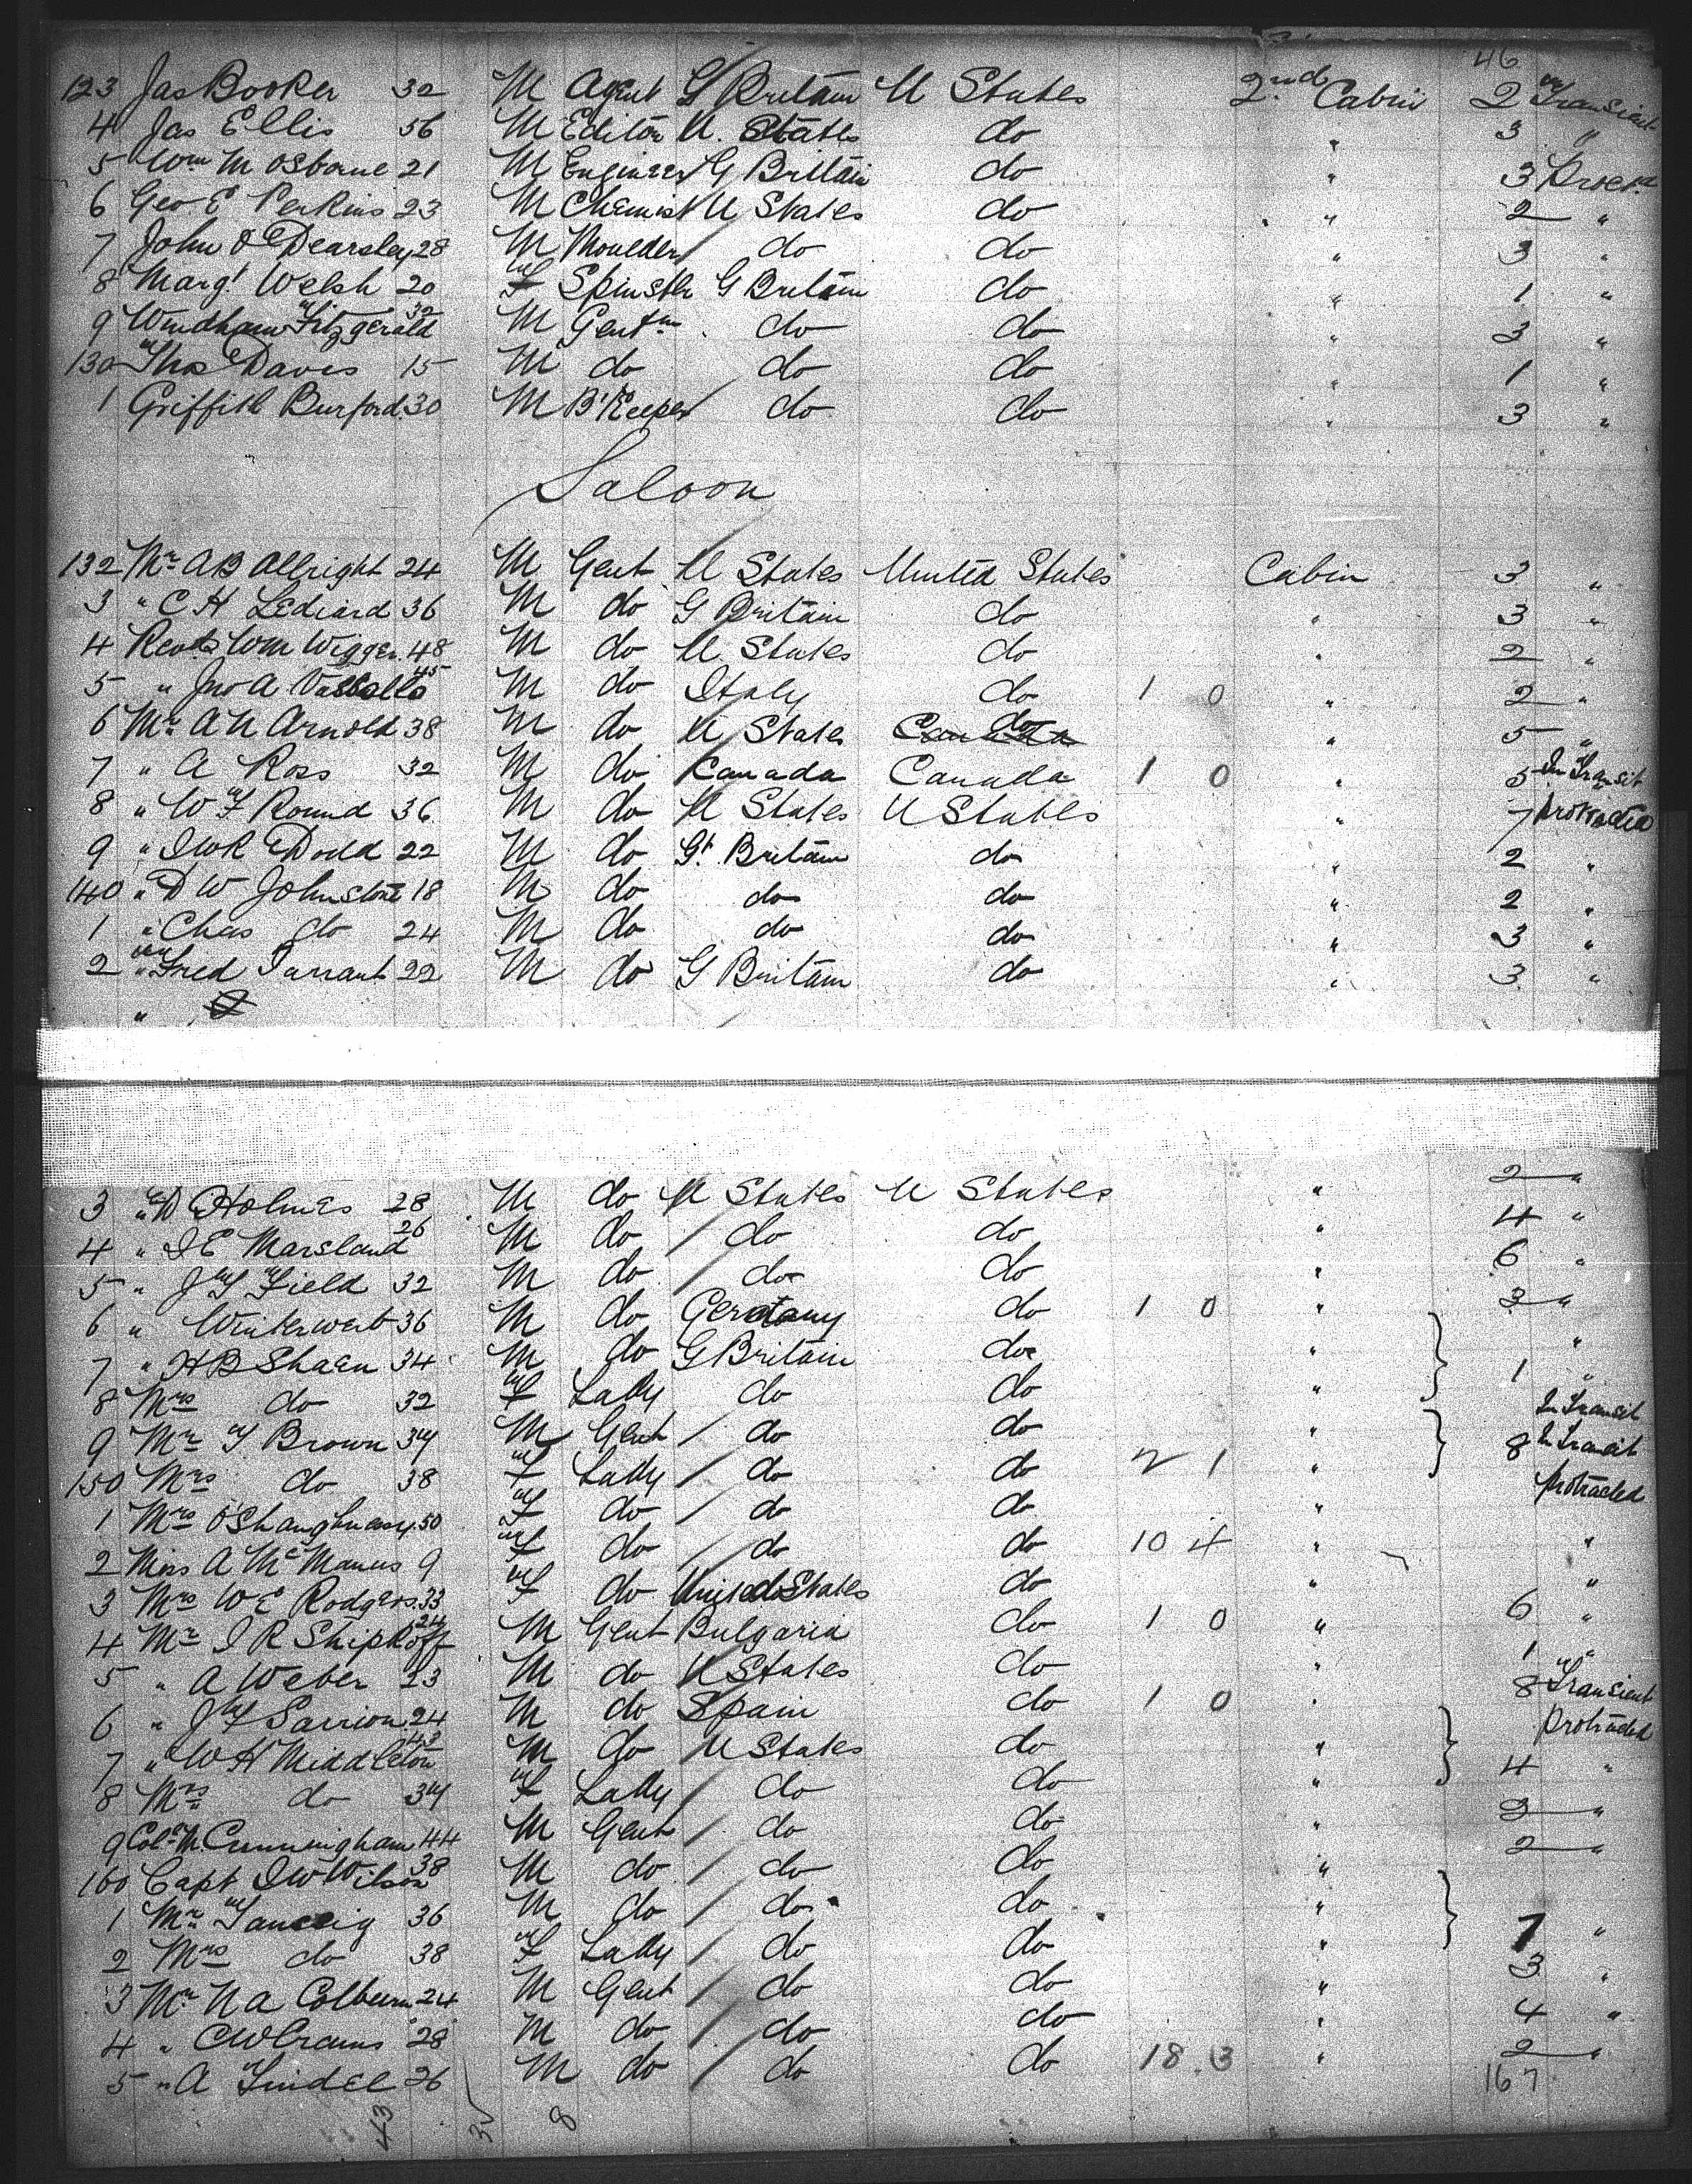 46
123 Jas Booker 32 M Agent G Britain U States 2nd Cabin 2 Transient
4 Jas Ellis 56 M Editor U. States do " 3 "
5 Wm M Osborne 21 M Engineer G Britain do " 3
6 Geo E Perkins 23 M Chemist U States do " 2 "
7 John O Dearsley 28 M Moulder do do " 3 "
8 Margt Welsh 20 F Spinster G Britain do " 1 "
9 Windham Fitzgerald 32 M Gentn do do " 3 "
130 Thos Davis 15 M do do do " 1 "
1 Griffith Burford 30 M B'Keeper do do " 3 "
Saloon
132 Mr A B Albright 24 M Gent U States United States Cabin 3 "
3 " C H Lediard 36 M do G Britain do " 3 "
4 Revd Wm Wigger 48 M do U States do " 2 "
5 " Jno A Vassallo 45 M do Italy do 1 0 " 2 "
6 Mr A N Arnold 38 M do U States do " 5 "
7 " A Ross 32 M do Canada Canada 1 0 " 5 In Transit
8 " W F Round 36 M do U States U States " 7 protracted
9 " I W R Dodd 22 M do Gt Britain do " 2 "
140 " D W Johnstone 18 M do do do " 2 "
1 " Chas do 24 M do do do " 3 "
2 " Fred Tarrant 22 M do G Britain do " 3 "
"
3 " D Holmes 28 M do U States U States " 2 "
4 " I E Marsland 26 M do do do " 4 "
5 " J F Field 32 M do do do " 6 "
6 " Winterwerb 36 M do Germany do 1 0 " 3 "
7 " H B Shaen 34 M do G Britain do " "
8 Mrs do 32 F Lady do do " 1 "
9 Mr T Brown 34 M Gent do do " In Transit
150 Mrs do 38 F Lady do do 2 1 " 8 In Transit
1 Mrs O'Shaughnessy 50 F do do do " protracted
2 Miss A McManus 9 F do do do 10 4 " "
3 Mrs W E Rodgers 33 F do United States do " "
4 Mr I R Shipkoff 24 M Gent Bulgaria do 1 0 " 6 "
5 " A Weber 23 M do U States do " 1 "
6 " J F Sarrion 24 M do Spain do 1 0 " 8 Transient
7 " W H Middleton 43 M do U States do " protracted
8 Mrs do 34 F Lady do do " 4 "
9 Col M. Cunningham 44 M Gent do do " 3 "
160 Capt I W Wilson 38 M do do do " 2 "
1 Mr Taussig 36 M do do do "
2 Mrs do 38 F Lady do do " 7 "
3 Mr N A Colburn 24 M Gent do do " 3 "
4 " C W Crams 28 M do do do " 4 "
5 " A Lindel 26 M do do do 18 3 " 2 "
167
43 3 8